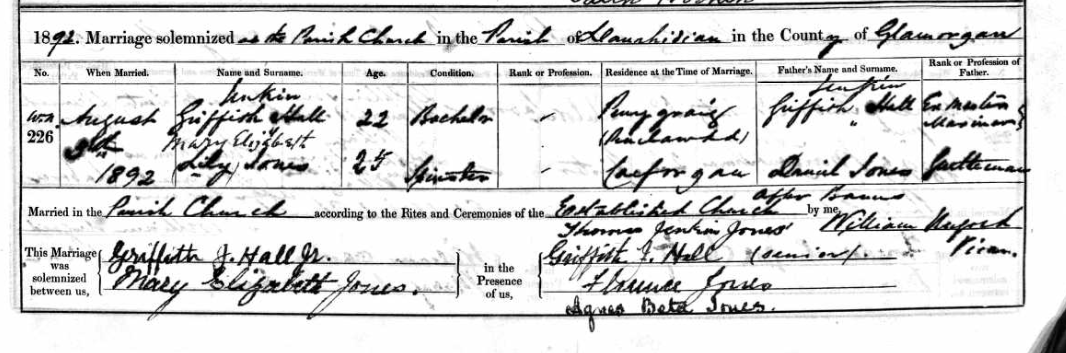 1892. Marriage solemnized at the Parish Church in the Parish of Llanrhidian in the County of Glamorgan
No. When Married. Name and Surname. Age. Condition. Rank or Profession. Residence at the Time of Marriage. Father's Name and Surname. Rank or Profession of Father.
Jenkin Jenkin
226 August Griffith Hall 22 Bachelor Penygraig Griffith Hall Ex Master Mariner
Mary Elizabeth
1892 Lily Jones 25 Spinster Daniel Jones Gentleman
Married in the Parish Church according to the Rites and Ceremonies of the Established Church after Banns by me,
Thomas Jenkin Jones William Vicar.
This Marriage was solemnized between us, Griffith J. Hall Jr. in the Presence of us, Griffith J. Hall (senior).
Mary Elizabeth Jones. Florence Jones
Agnes Beta Jones.